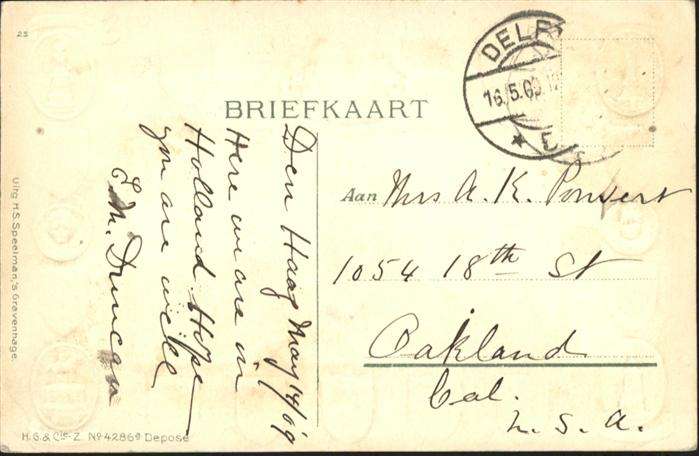 25
BRIEFKAART
DELF
16.5.09
Den Haag May 14/09
Here we are in
Holland. Hope
you are well
E. M. Duncan
Aan Mrs A. K. Ponvert
1054 18th St
Oakland
Cal.
U. S. A.
Uitg. H.S. Speelman 's Gravenhage.
H. G. & Cie.-Z. No. 42869 Deposé